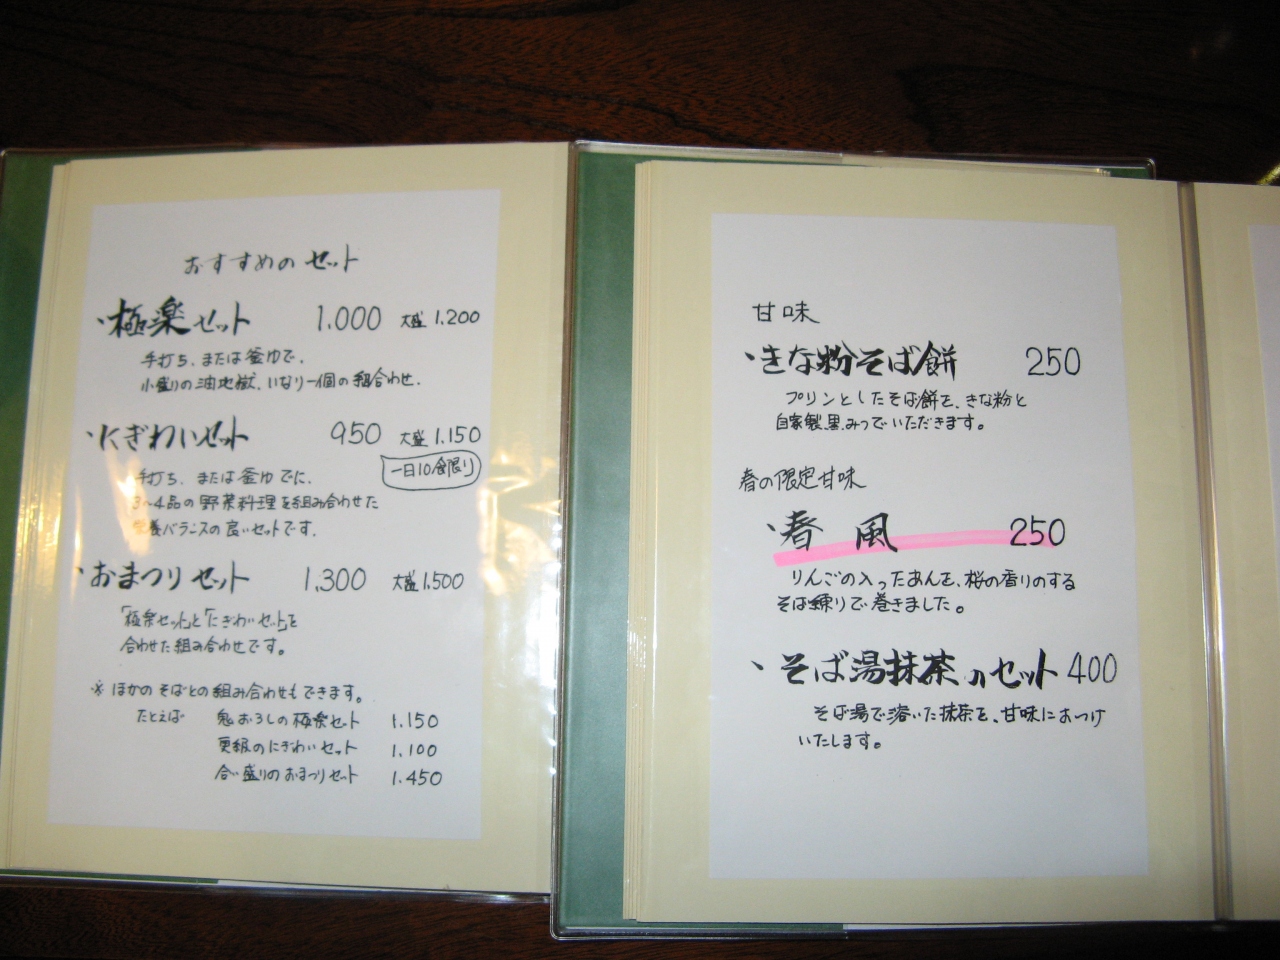 おすすめの セット
・極楽セット 1.000 大盛 1.200
手打ち、または釜ゆで、
小盛りの油地獄、いなり一個の組合わせ.
・にぎわいセット 950 大盛 1.150
一日10食限り
手打ち、または釜ゆでに、
3〜4品の野菜料理を組み合わせた
栄養バランスの良いセットです.
・おまつりセット 1.300 大盛 1.500
「極楽セット」と「にぎわいセット」を
合わせた組み合わせです。
※ ほかのそばとの組み合わせもできます。
たとえば 鬼おろしの極楽セット 1.150
更級のにぎわいセット 1.100
合い盛りのおまつりセット 1.450
甘味
・きな粉そば餅 250
プリンとしたそば餅を、きな粉と
自家製黒みつでいただきます。
春の限定甘味
・春 風 250
りんごの入ったあんを、桜の香りのする
そば練りで巻きました。
・そば湯抹茶のセット 400
そば湯で溶いた抹茶を、甘味におつけ
いたします。